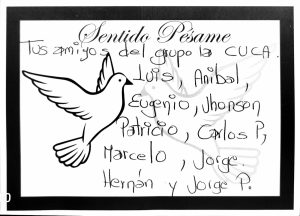 Sentido Pésame
Tus amigos del grupo la CUCA.
Luis, Anibal,
Eugenio, Jhonson
Patricio, Carlos P,
Marcelo, Jorge.
Hernán y Jorge P.